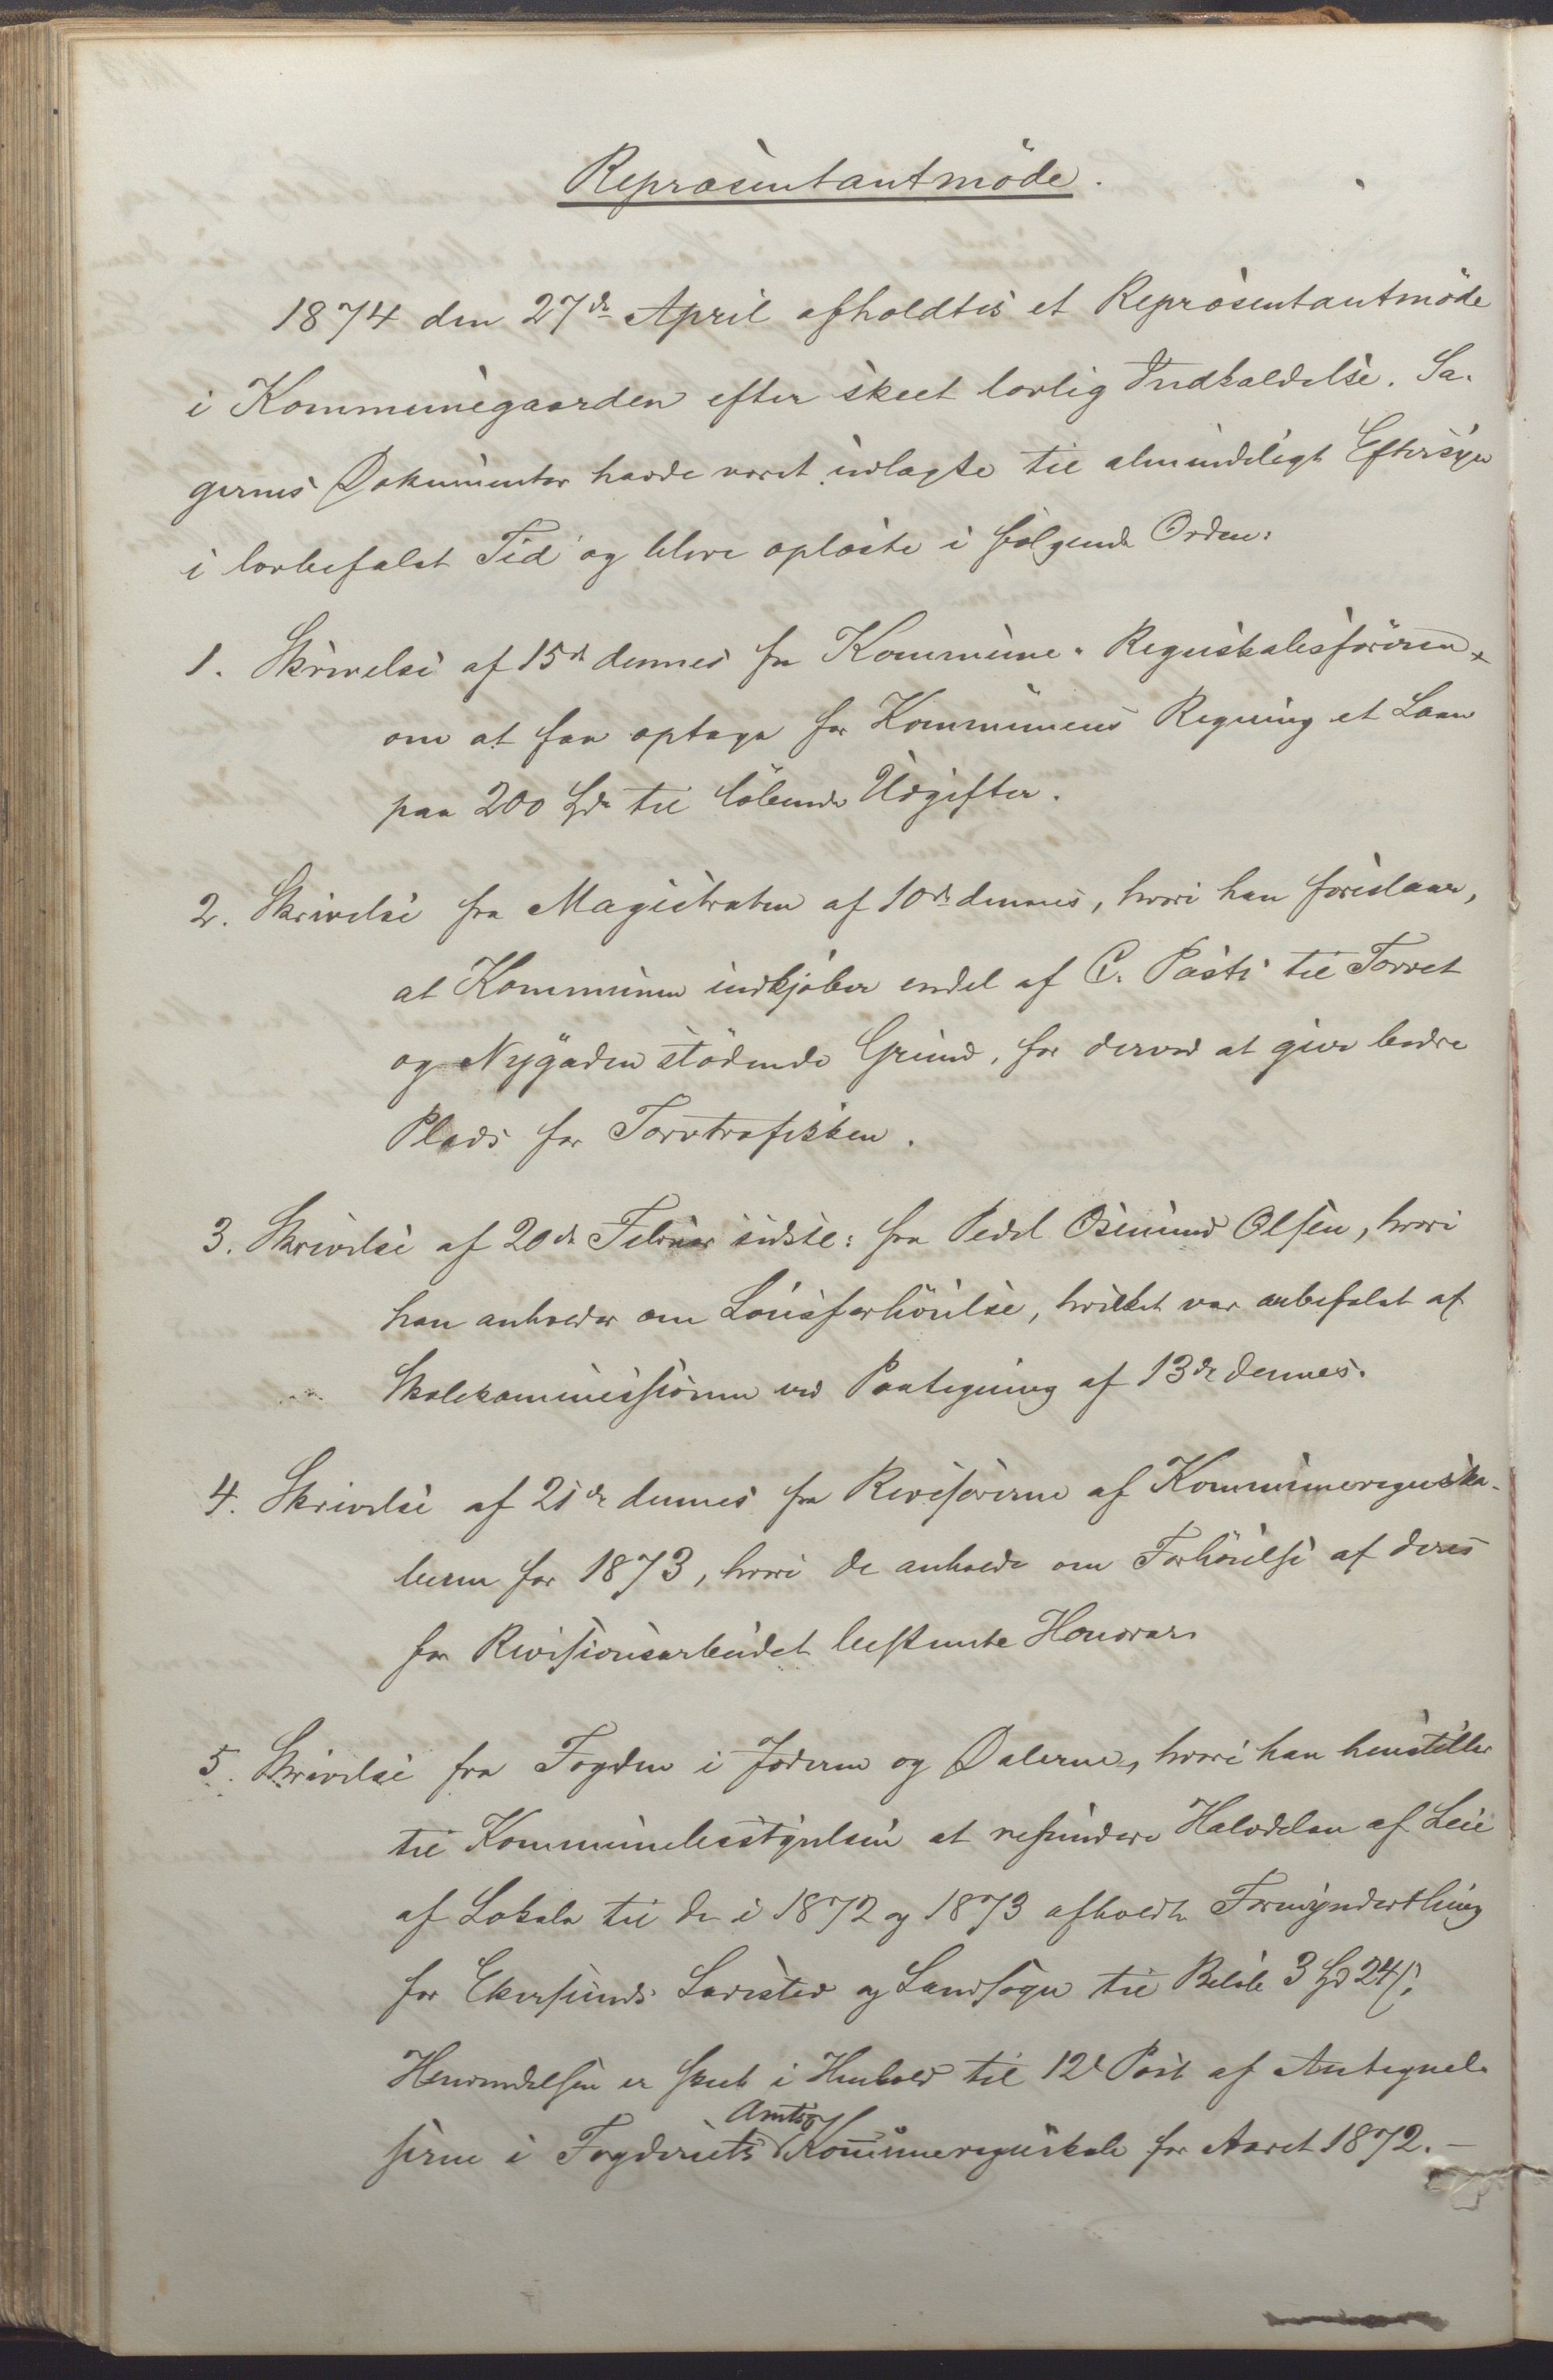 Repræsentantmöde.
1874 den 27de April afholdtes et Repræsentantmöde
i Kommunegaarden efter skeet lovlig Indkaldelse. Sa-
gernes Dokumenter havde været udlagte til almindeligt Eftersyn
i lovbefalet Tid og bleve oplæste i fölgende Orden:
1. Skrivelse af 15de dennes fra Kommune-Regnskabsföreren
om at faa optage for Kommunens Regning et Laan
paa 200 Spd til löbende Udgifter.
2. Skrivelse fra Magistraten af 10de dennes, hvori han foreslaar,
at Kommunen indkjöber endel af C. Pasts til Torvet
og Nygaden stödende Grund, for derved at give bedre
Plads for Torvtrafikken.
3. Skrivelse af 20de Februar sidstl: fra Pedel Osmund Olsen, hvori
han anholder om Lönsforhöielse, hvilket var anbefalet af
Skolekommissionen ved Paategning af 13de dennes.
4. Skrivelse af 21de dennes fra Revisorerne af Kommuneregnska-
berne for 1873, hvori de anholde om Forhöielse af deres
for Revisionsarbeidet bestemte Honorar.
5. Skrivelse fra Fogden i Jæderen og Dalerne, hvori han henstiller
til Kommunebestyrelsen at refundere Halvdelen af Leie
af Lokale til de i 1872 og 1873 afholdte Formynderthing
for Ekersunds Ladested og Landsogn til Belöb 3 Spd 24 s;
Henvendelsen er skeet i Henhold til 12te Post af Antegnel-
serne i Fogderiets Amts- Kommuneregnskab for Aaret 1872. –